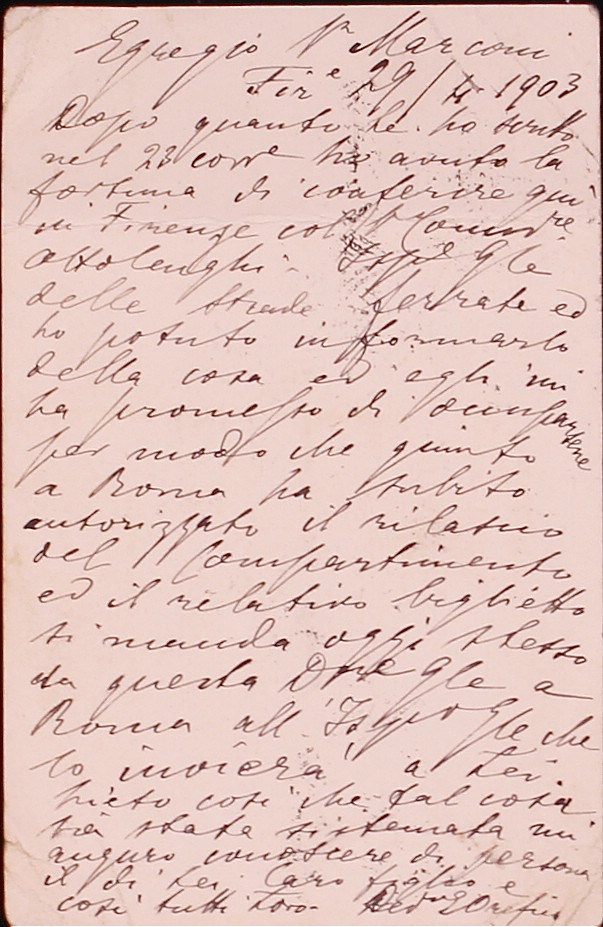 Egregio Sr Marconi
Fir.e 29/4 1903
Dopo quanto Le ho scritto
nel 23 corre ho avuto la
fortuna di conferire qui
in Firenze col Sr Commre
Ottolenghi - Ispre Gle
delle strade ferrate ed
ho potuto informarlo
della cosa ed egli mi
ha promesso di occuparsene
per modo che giunto
a Roma ha subito
autorizzato il rilascio
del Compartimento
ed il relativo biglietto
si manda oggi stesso
da questa Dne Gle a
Roma all'Ispo Gle che
lo invierà a Lei.
Lieto così che tal cosa
sia stata sistemata mi
auguro conoscere di persona
il di Lei Caro figlio e
così tutti Loro - Dev